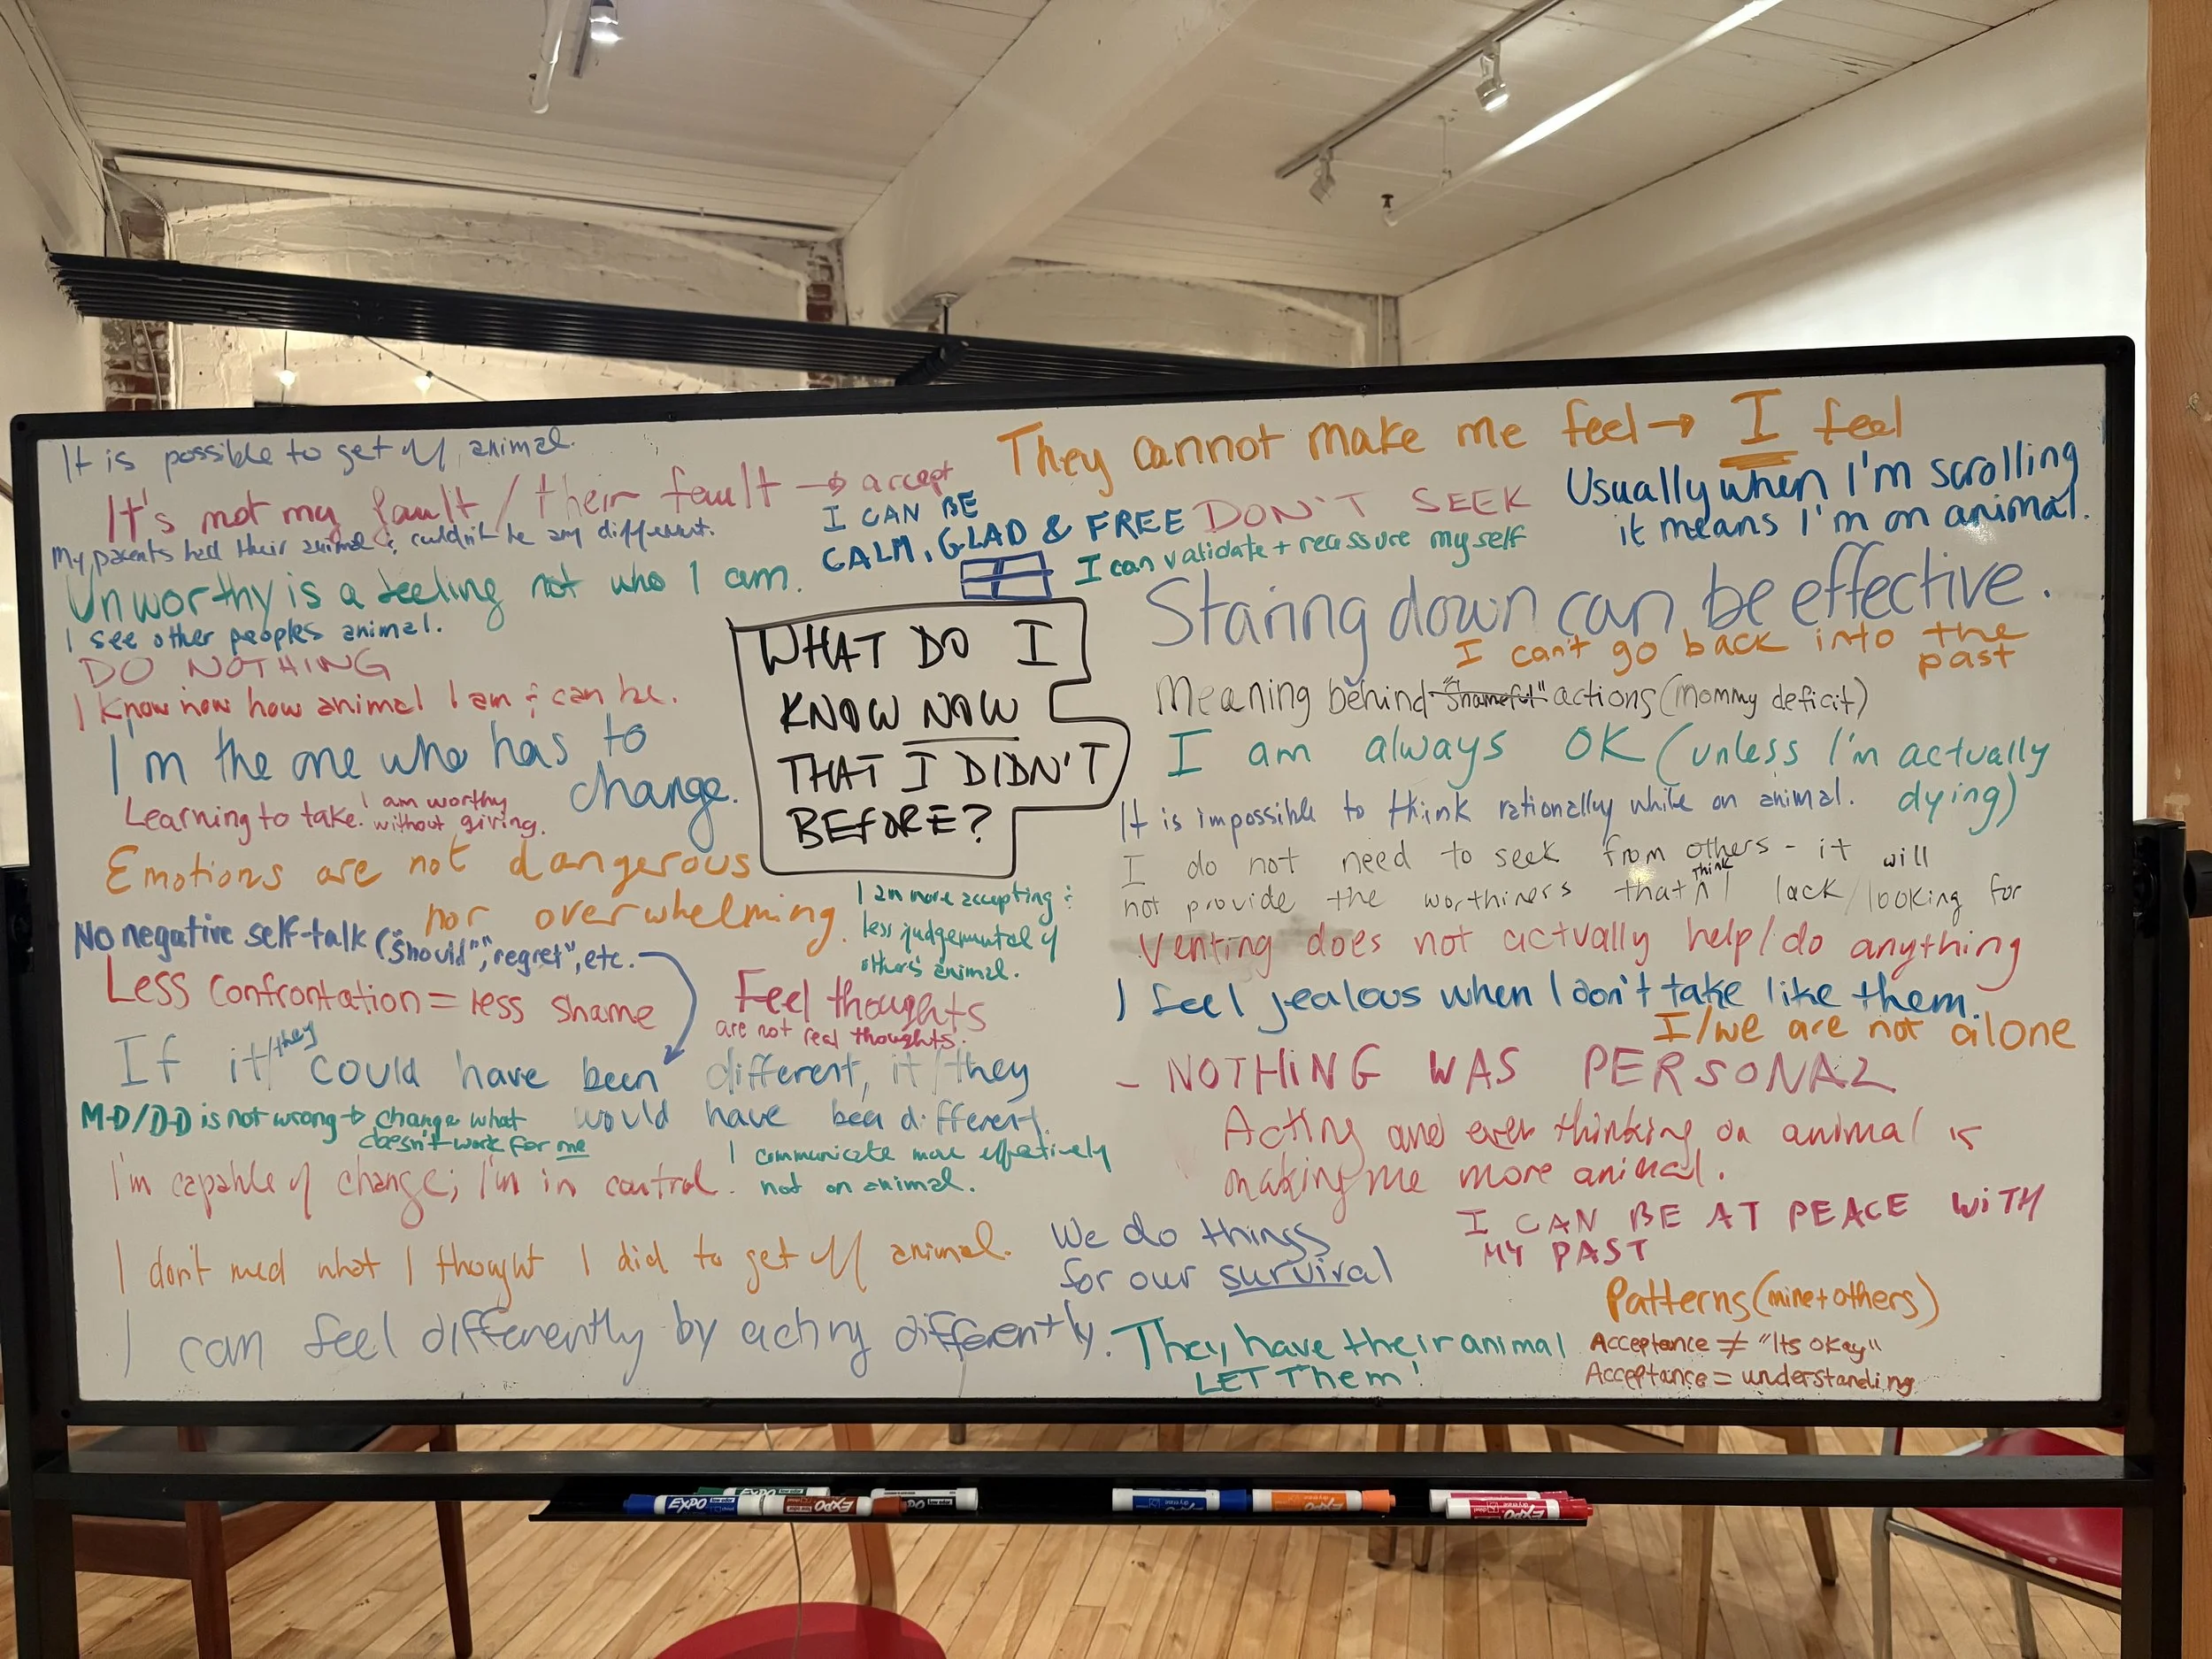 It is possible to get off animal.
It's not my fault / their fault → accept
My parents had their animal & couldn't be any different.
Unworthy is a feeling not who I am.
I see other peoples animal.
DO NOTHING
I know now how animal I am & can be.
I'm the one who has to
change.
Learning to take. I am worthy
without giving.
Emotions are not dangerous
nor overwhelming.
No negative self-talk ("should", "regret", etc.
Less confrontation = less shame
If it/they could have been different, it/they
would have been different.
M-D/D-D is not wrong → change what
doesn't work for me
I'm capable of change; I'm in control.
I don't need what I thought I did to get off animal.
I can feel differently by acting differently.
I CAN BE
CALM, GLAD & FREE
WHAT DO I
KNOW NOW
THAT I DIDN'T
BEFORE?
I am more accepting &
less judgemental of
others' animal.
Feel thoughts
are not real thoughts.
I communicate more effectively
not on animal.
We do things
for our survival
They cannot make me feel → I feel
DON'T SEEK
I can validate + reassure myself
Usually when I'm scrolling
it means I'm on animal.
Staring down can be effective.
I can't go back into the
past
Meaning behind "shameful" actions (mommy deficit)
I am always OK (unless I'm actually
dying)
It is impossible to think rationally while on animal.
I do not need to seek from others - it will
not provide the worthiness that think I lack/looking for
Venting does not actually help/do anything
I feel jealous when I don't take like them.
I/we are not alone
- NOTHING WAS PERSONAL
Acting and even thinking on animal is
making me more animal.
I CAN BE AT PEACE WITH
MY PAST
Patterns (mine + others)
They have their animal
LET THEM!
Acceptance ≠ "Its okay"
Acceptance = understanding
EXPO
EXPO
EXPO
EXPO